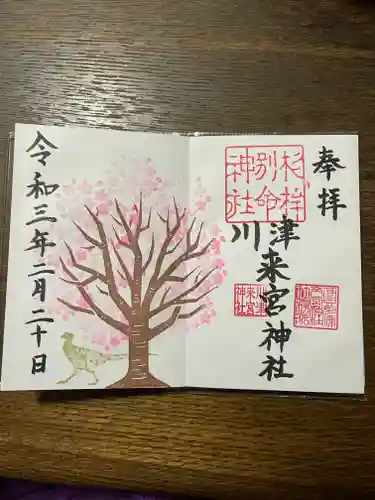 奉拝
杉桙
別命
神社
川津
来宮神社
令和三年二月二十日